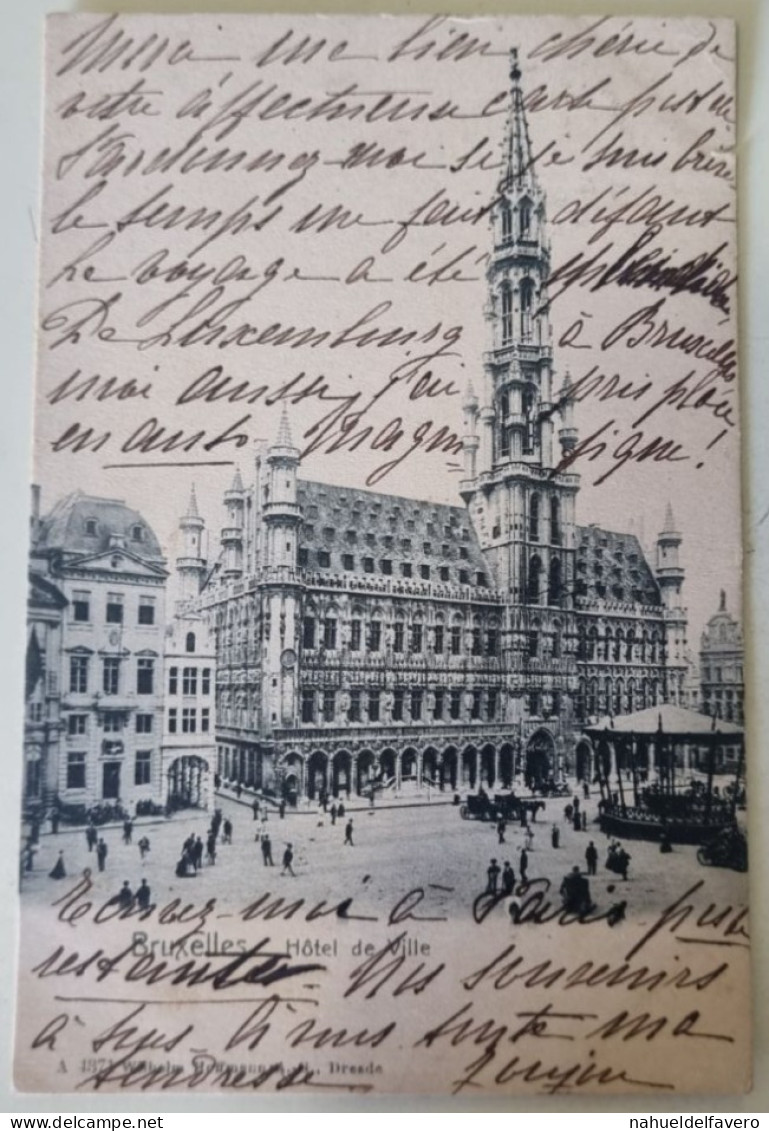 Merci ma bien chérie de
votre affectueuse carte postale
Pardonnez-moi si je suis brève
le temps me fait défaut
Le voyage a été splendide
De Luxembourg à Bruxelles
moi aussi, j'ai pris place
en auto magnifique!
Bruxelles Hôtel de Ville
Ecrivez-moi à Paris poste
restante Mes souvenirs
à tous
A 4371 Wilhelm Hoffmann A.-G., Dresde
tendresse
nahueldelfavero
www.delcampe.net